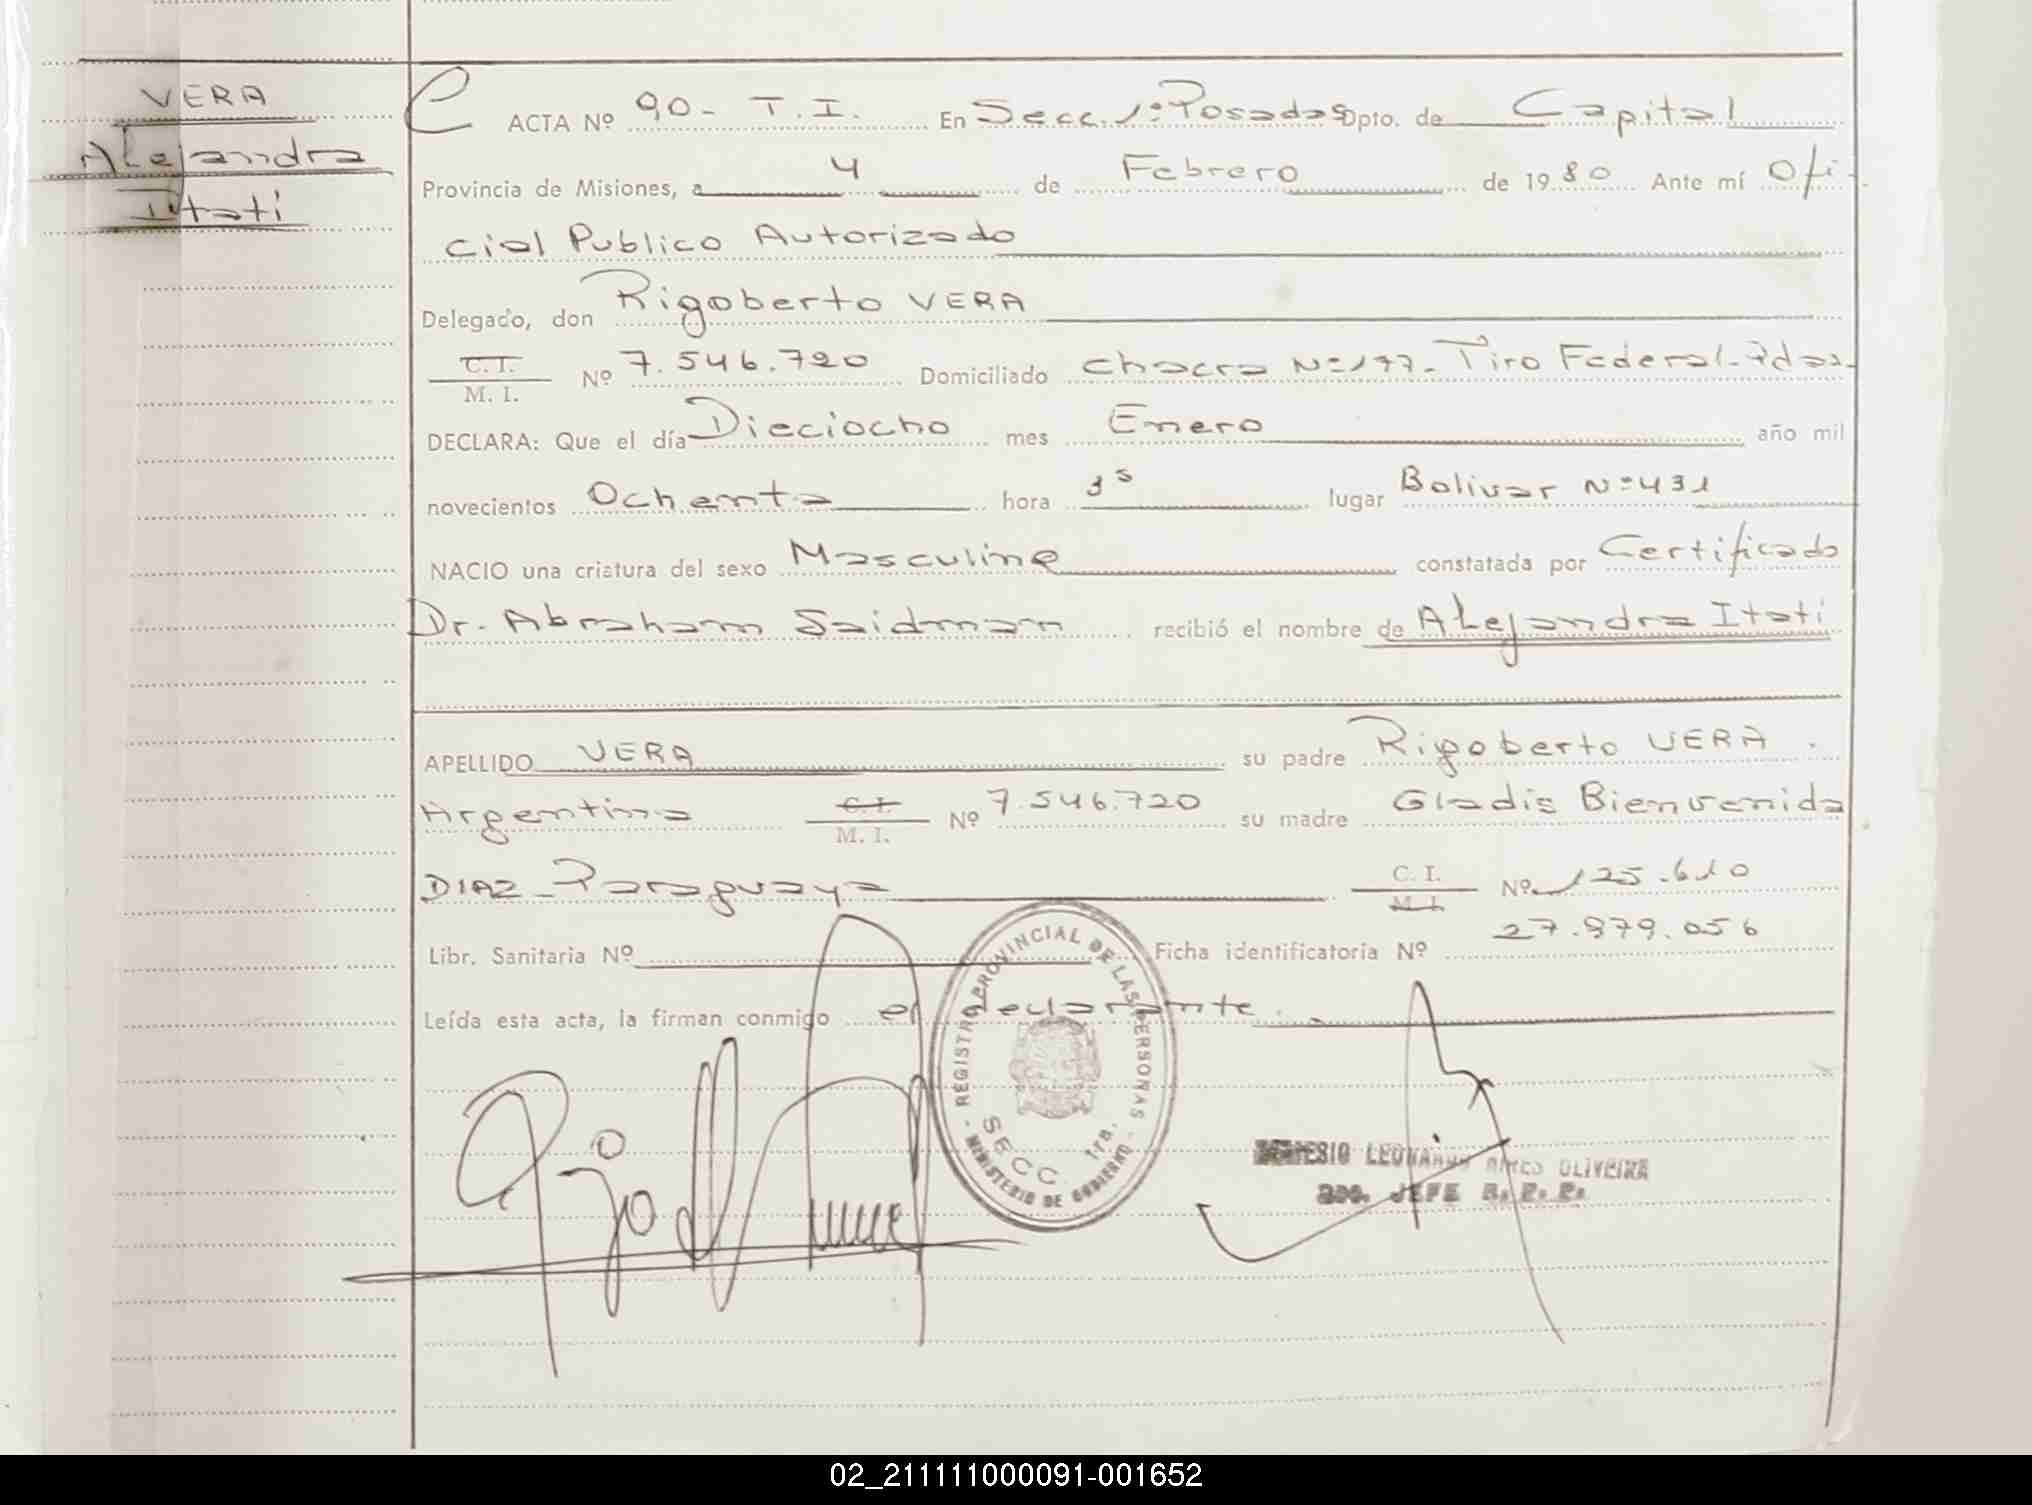 VERA
Alejandra
Itati
ACTA Nº 90- T.I. En Secc. 1ª Posadas Dpto. de Capital
Provincia de Misiones, a 4 de Febrero de 1980 Ante mí Ofi-
cial Publico Autorizado
Delegado, don Rigoberto VERA
C.I.
M. I. Nº 7.546.720 Domiciliado Chacra Nº 177- Tiro Federal- Pdas.
DECLARA: Que el día Dieciocho mes Enero año mil
novecientos Ochenta hora 3s lugar Bolivar Nº 431
NACIO una criatura del sexo Masculine constatada por Certificado
Dr. Abraham Saidman recibió el nombre de Alejandra Itati
APELLIDO VERA su padre Rigoberto VERA.
Argentina C.I. M. I. Nº 7.546.720 su madre Gladis Bienvenida
DIAZ- Paraguaya C. I. M.I. Nº 125.610
Libr. Sanitaria Nº Ficha identificatoria Nº 27.979.056
Leída esta acta, la firman conmigo el declarante.
REGISTRO PROVINCIAL DE LAS PERSONAS
SECC. 1ra.
- MINISTERIO DE GOBIERNO -
OLIVEIRA
JEFE
02_211111000091-001652